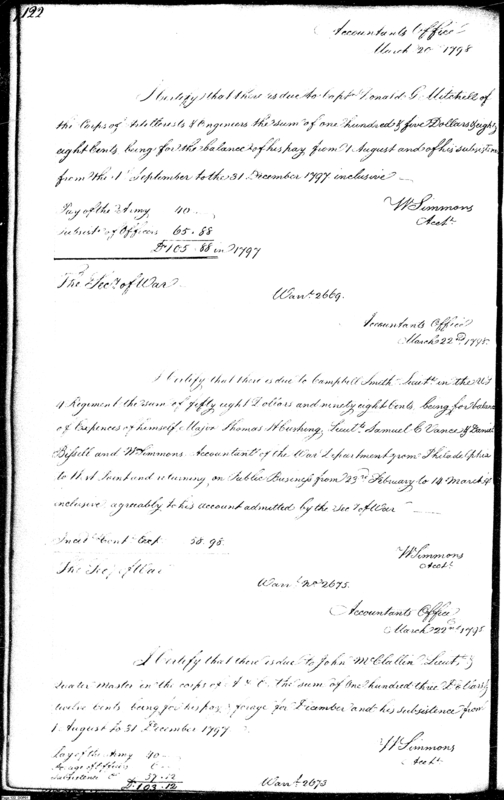 122
Accountants Office
March 20 1798
I Certify that there is due to Capt Donald G. Mitchell of
the Corps of Artillerists & Engineers the sum of one hundred & five Dollars & eighty
eight Cents being for the balance of his pay from 1 August and of his subsistence
from the 1 September to the 31 December 1797 inclusive
Pay of the Army 40
Subsist of Officers 65.88
D. 105.88 in 1797
W Simmons
Acct
The Secy of War
Warrt 2669.
Accountants Office
March 22d 1798.
I Certify that there is due to Campbell Smith Lieut in the
4 Regiment the sum of fifty eight Dollars and ninety eight Cents, being for balance
of Expences of himself Major Thomas H Cushing, Lieuts Samuel C Vance & Daniel
Bissell and W Simmons Accountant of the War Department from Philadelphia
to that point and returning, on Public Business from 23rd February to 14 March
inclusive agreeably to his account admitted by the Secy of War
Incidl Cont Exp 58.98.
W Simmons
Acct
The Secy of War
Warrt No 2675.
Accountants Office
March 22nd 1798
I Certify that there is due to John McClallen Lieut &
Quarter Master in the corps of A & E the sum of One hundred three Dollars &
twelve Cents being for his pay & forage for December and his subsistence from
1 August to 31 December 1797
Pay of the Army 40
Forage of Officers 6
Subsistence 57.12
D. 103.12
W Simmons
Acct
Warrt 2673